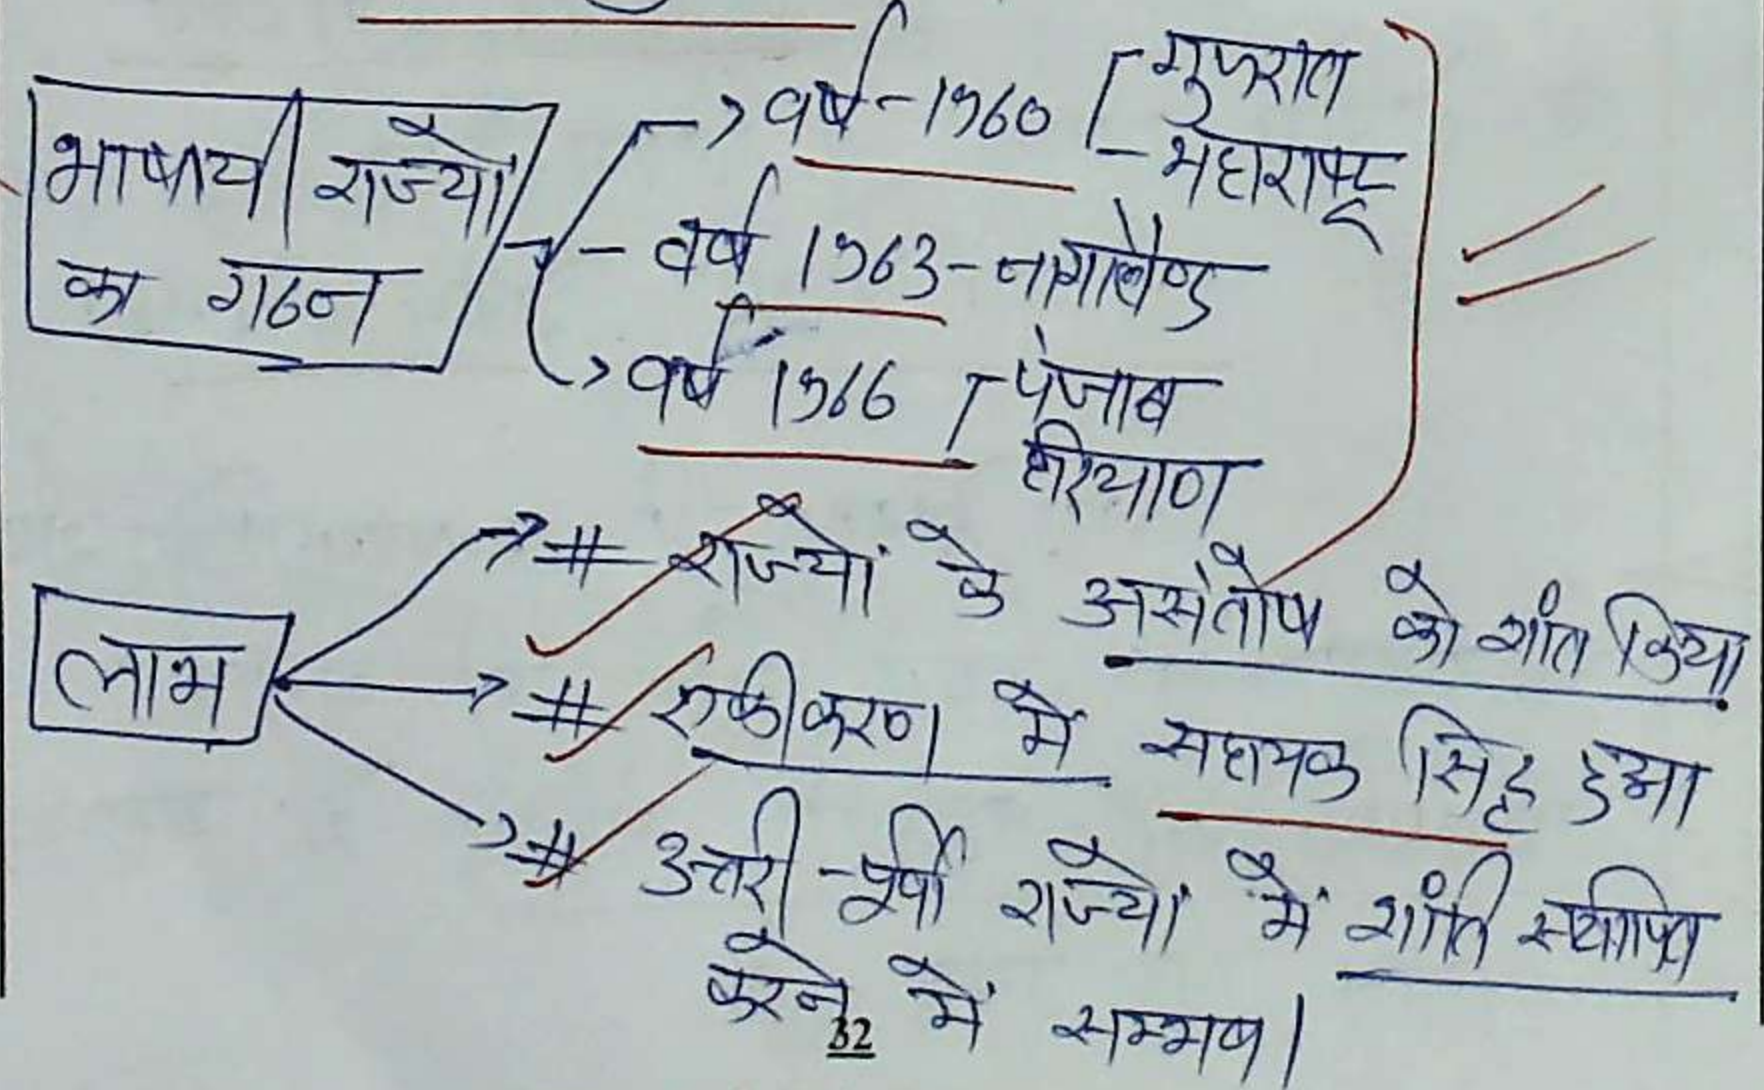 भाषाय राज्यों
का गठन
वर्ष-1960
गुजरात
महाराष्ट्र
वर्ष 1963-नागालैण्ड
वर्ष 1966
पंजाब
हरियाण
लाभ
# राज्यों के असंतोष को शांत किया
# एकीकरण में सहायक सिद्ध हुआ
# उत्तरी-पूर्वी राज्यों में शांति स्थापित
करने में सम्भव।
32